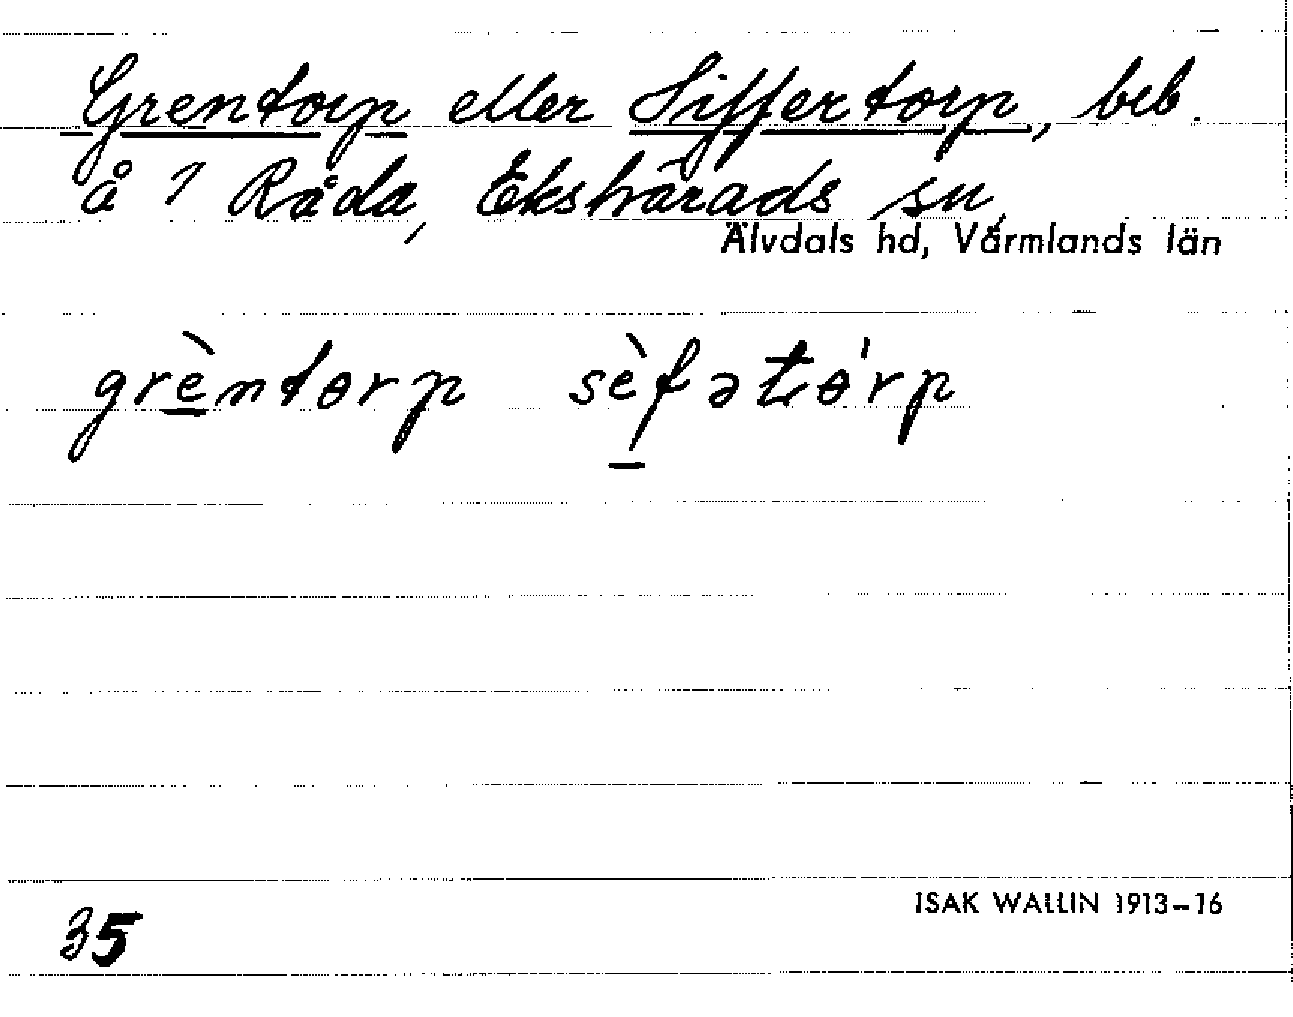 Grentorp eller Siffertorp, beb.
å 1 Råda, Ekshärads sn,
Älvdals hd, Värmlands län
grèntɵrp sèfətɵ́rp
35
ISAK WALLIN 1913–16